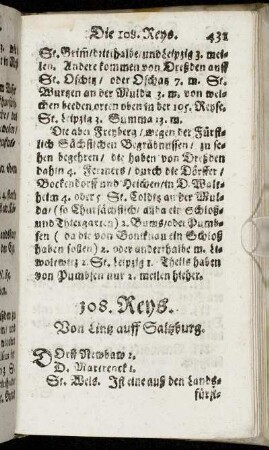 Die 108. Reys. 431
St. Grim / dritthalbe / und Leipzig 3. mei-
len. Andere kommen von Dreßden auff
St. Oschitz / oder Oschatz 7. m. St.
Wurtzen an der Mulda 3. m. von wel-
chen beeden orten oben in der 105. Reyse.
St. Leipzig 3. Summa 13. m.
Die aber Freyberg / wegen der Fürst-
lich Sächsischen Begräbnussen / zu se-
hen begehren / die haben von Dreßden
dahin 4. Ferrners / durch die Dörffer /
Bockendorff und in D. Walt-
heim 4. oder St. Colditz an der Mul-
da / (so Chursächsisch / auda ein Schloß
und Thiergarten) 2. oder Pum-
sen ( da die von Ponickau ein Schloß
haben sollen) 2. oder anderthalbe m. Li-
wolewitz 2. St. Leipzig 1. Theils haben
von Pumbsen nur 2. meilen hieher.
108. Reys.
Von Lintz auff Saltzburg.
Dorff Newbaw 2.
D. Martrenck 1.
St. Wels. Ist eine auß den Lands-
fürst-